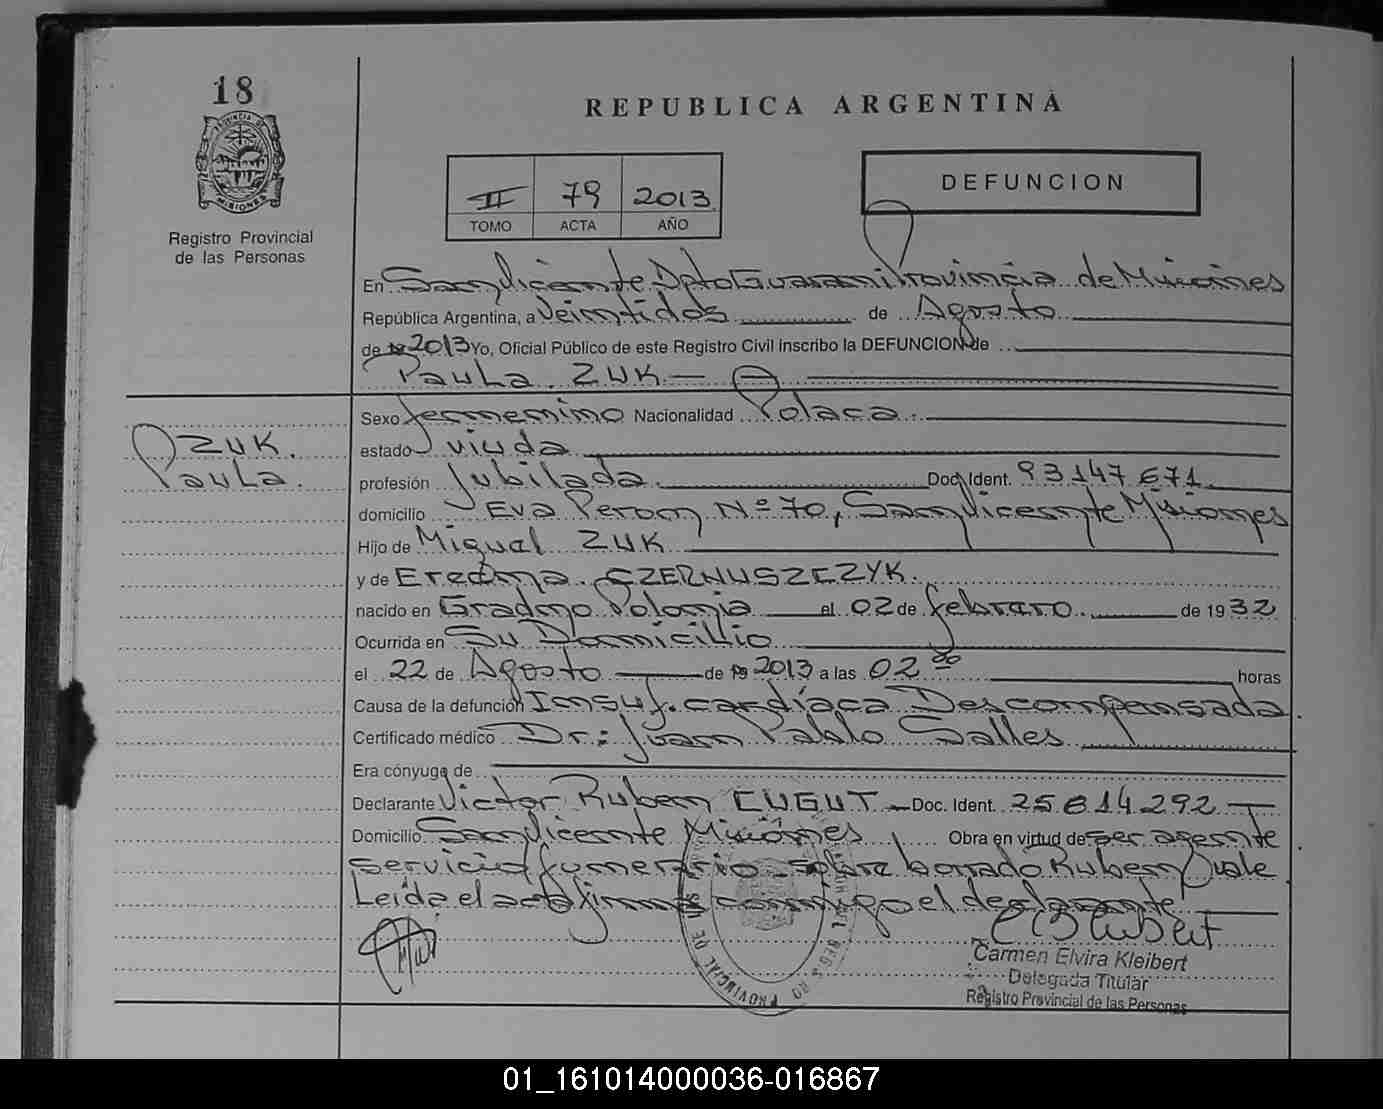 18
PROVINCIA DE
MISIONES
Registro Provincial
de las Personas
REPUBLICA ARGENTINA
II 79 2013
TOMO ACTA AÑO
DEFUNCION
En San Vicente Dpto Guarani Provincia de Misiones
República Argentina, a Veintidos de Agosto
de 2013 Yo, Oficial Público de este Registro Civil inscribo la DEFUNCION de
Paula ZUK
ZUK.
Paula.
Sexo femenino Nacionalidad Polaca
estado viuda
profesión Jubilada Doc. Ident. 93147671
domicilio Eva Peron Nº 70, San Vicente Misiones
Hijo de Miguel ZUK
y de CZERNUSZCZYK.
nacido en Polonia el 02 de febrero de 1932
Ocurrida en Su Domicilio
el 22 de Agosto de 2013 a las 02 00 horas
Causa de la defunción Insuf. cardíaca Descompensada.
Certificado médico Dr: Juan Pablo Salles
Era cónyuge de
Declarante Victor Ruben Doc. Ident. 25.814.292
Domicilio San Vicente Misiones Obra en virtud de ser agente
servicio funerario - sobre borrado Ruben Vale
Leída el acta firma conmigo el declarante
Carmen Elvira Kleibert
Delegada Titular
Registro Provincial de las Personas
PROVINCIAL DE
01_161014000036-016867